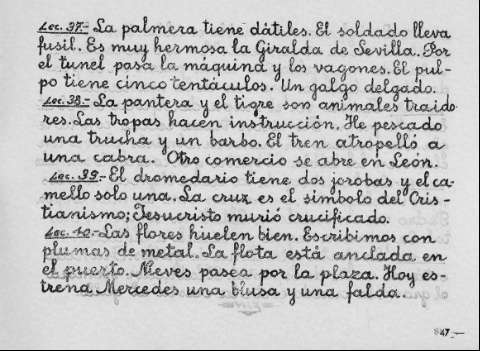 Lec. 37.- La palmera tiene dátiles. El soldado lleva
fusil. Es muy hermosa la Giralda de Sevilla. Por
el tunel pasa la máquina y los vagones. El pul-
po tiene cinco tentáculos. Un galgo delgado.
Lec. 38.- La pantera y el tigre son animales traido
res. Las tropas hacen instrucción. He pescado
una trucha y un barbo. El tren atropelló a
una cabra. Otro comercio se abre en León.
Lec. 39.- El dromedario tiene dos jorobas y el ca-
mello solo una. La cruz es el símbolo del Cris-
tianismo; Jesucristo murió crucificado.
Lec. 40.- Las flores huelen bien. Escribimos con
plumas de metal. La flota está anclada en
el puerto. Nieves pasea por la plaza. Hoy es-
trena Mercedes una blusa y una falda.
47.-